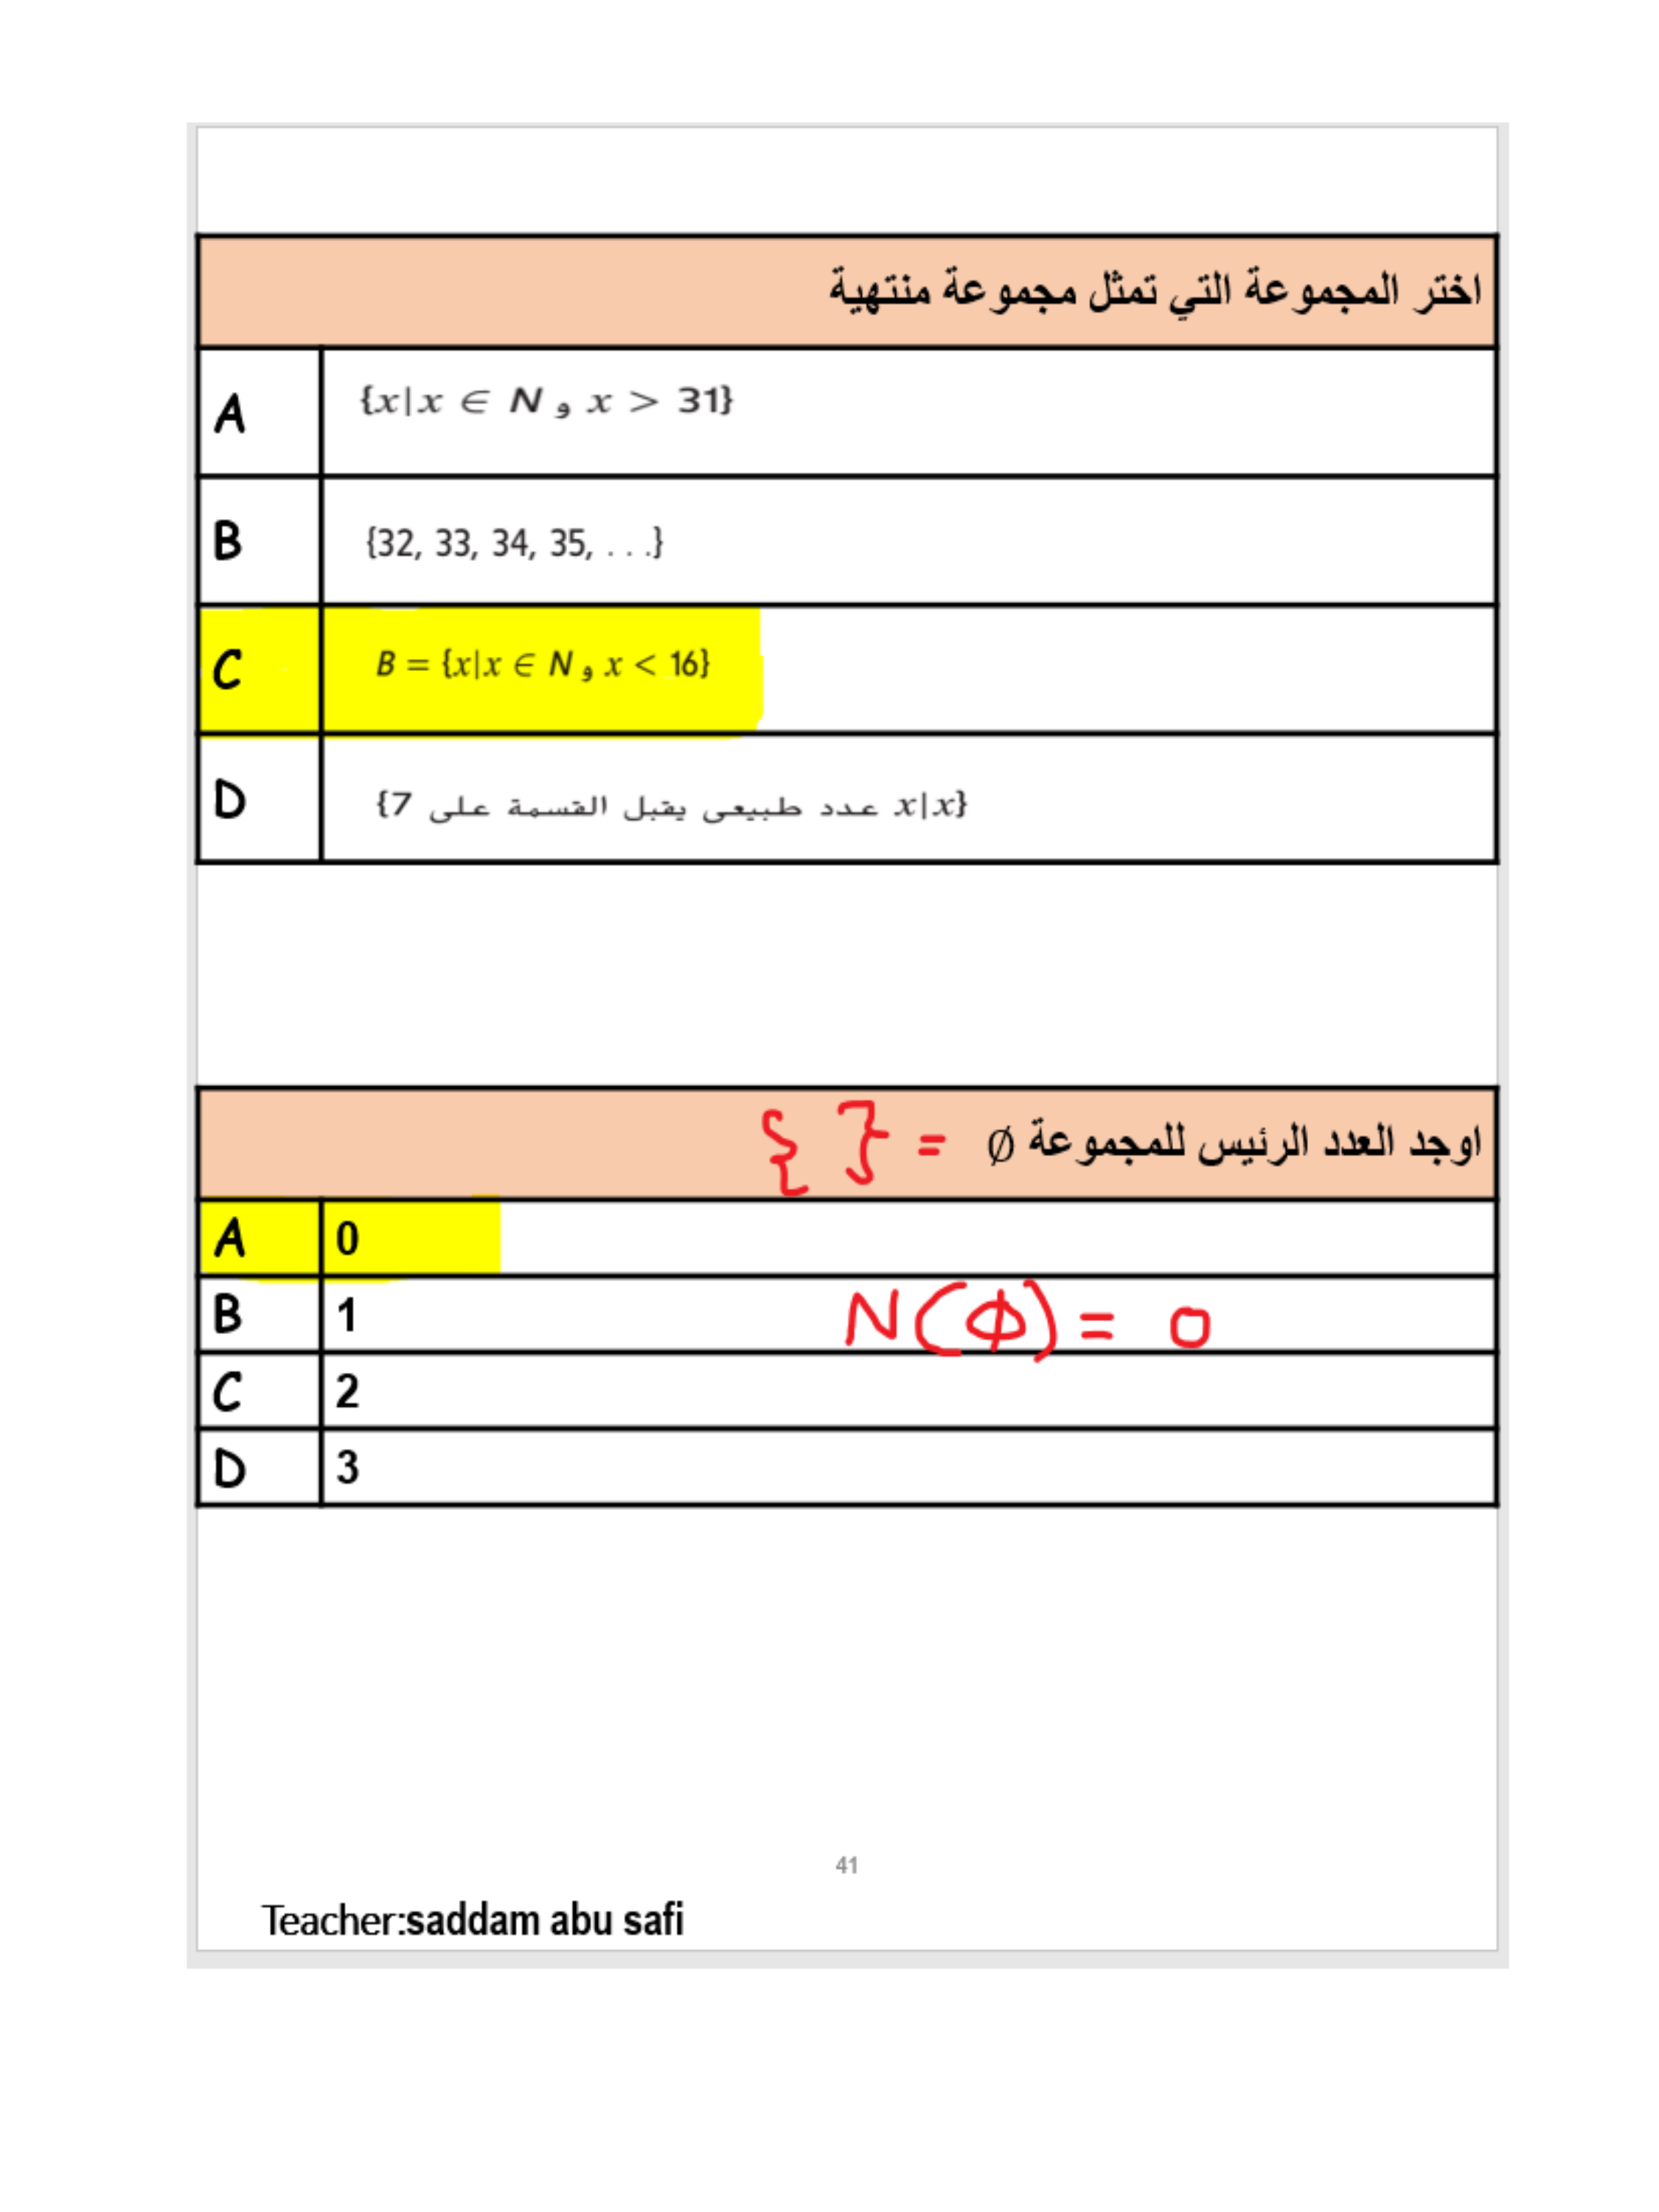 اختر المجموعة التي تمثل مجموعة منتهية
A {x|x ∈ N و x > 31}
B {32, 33, 34, 35, . . .}
C B = {x|x ∈ N و x < 16}
D {x|x عدد طبيعى يقبل القسمة على 7}
اوجد العدد الرئيس للمجموعة ∅ = { }
A 0
B 1 N(ϕ) = 0
C 2
D 3
41
Teacher:saddam abu safi